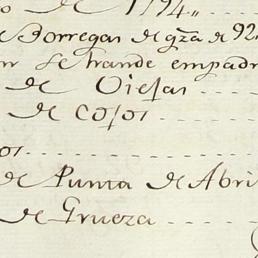 de 1794,,
Borregas de gza de 92
se hande empad
de Oiejas
de Cojos
os
de Punta de Abri
de Grueza